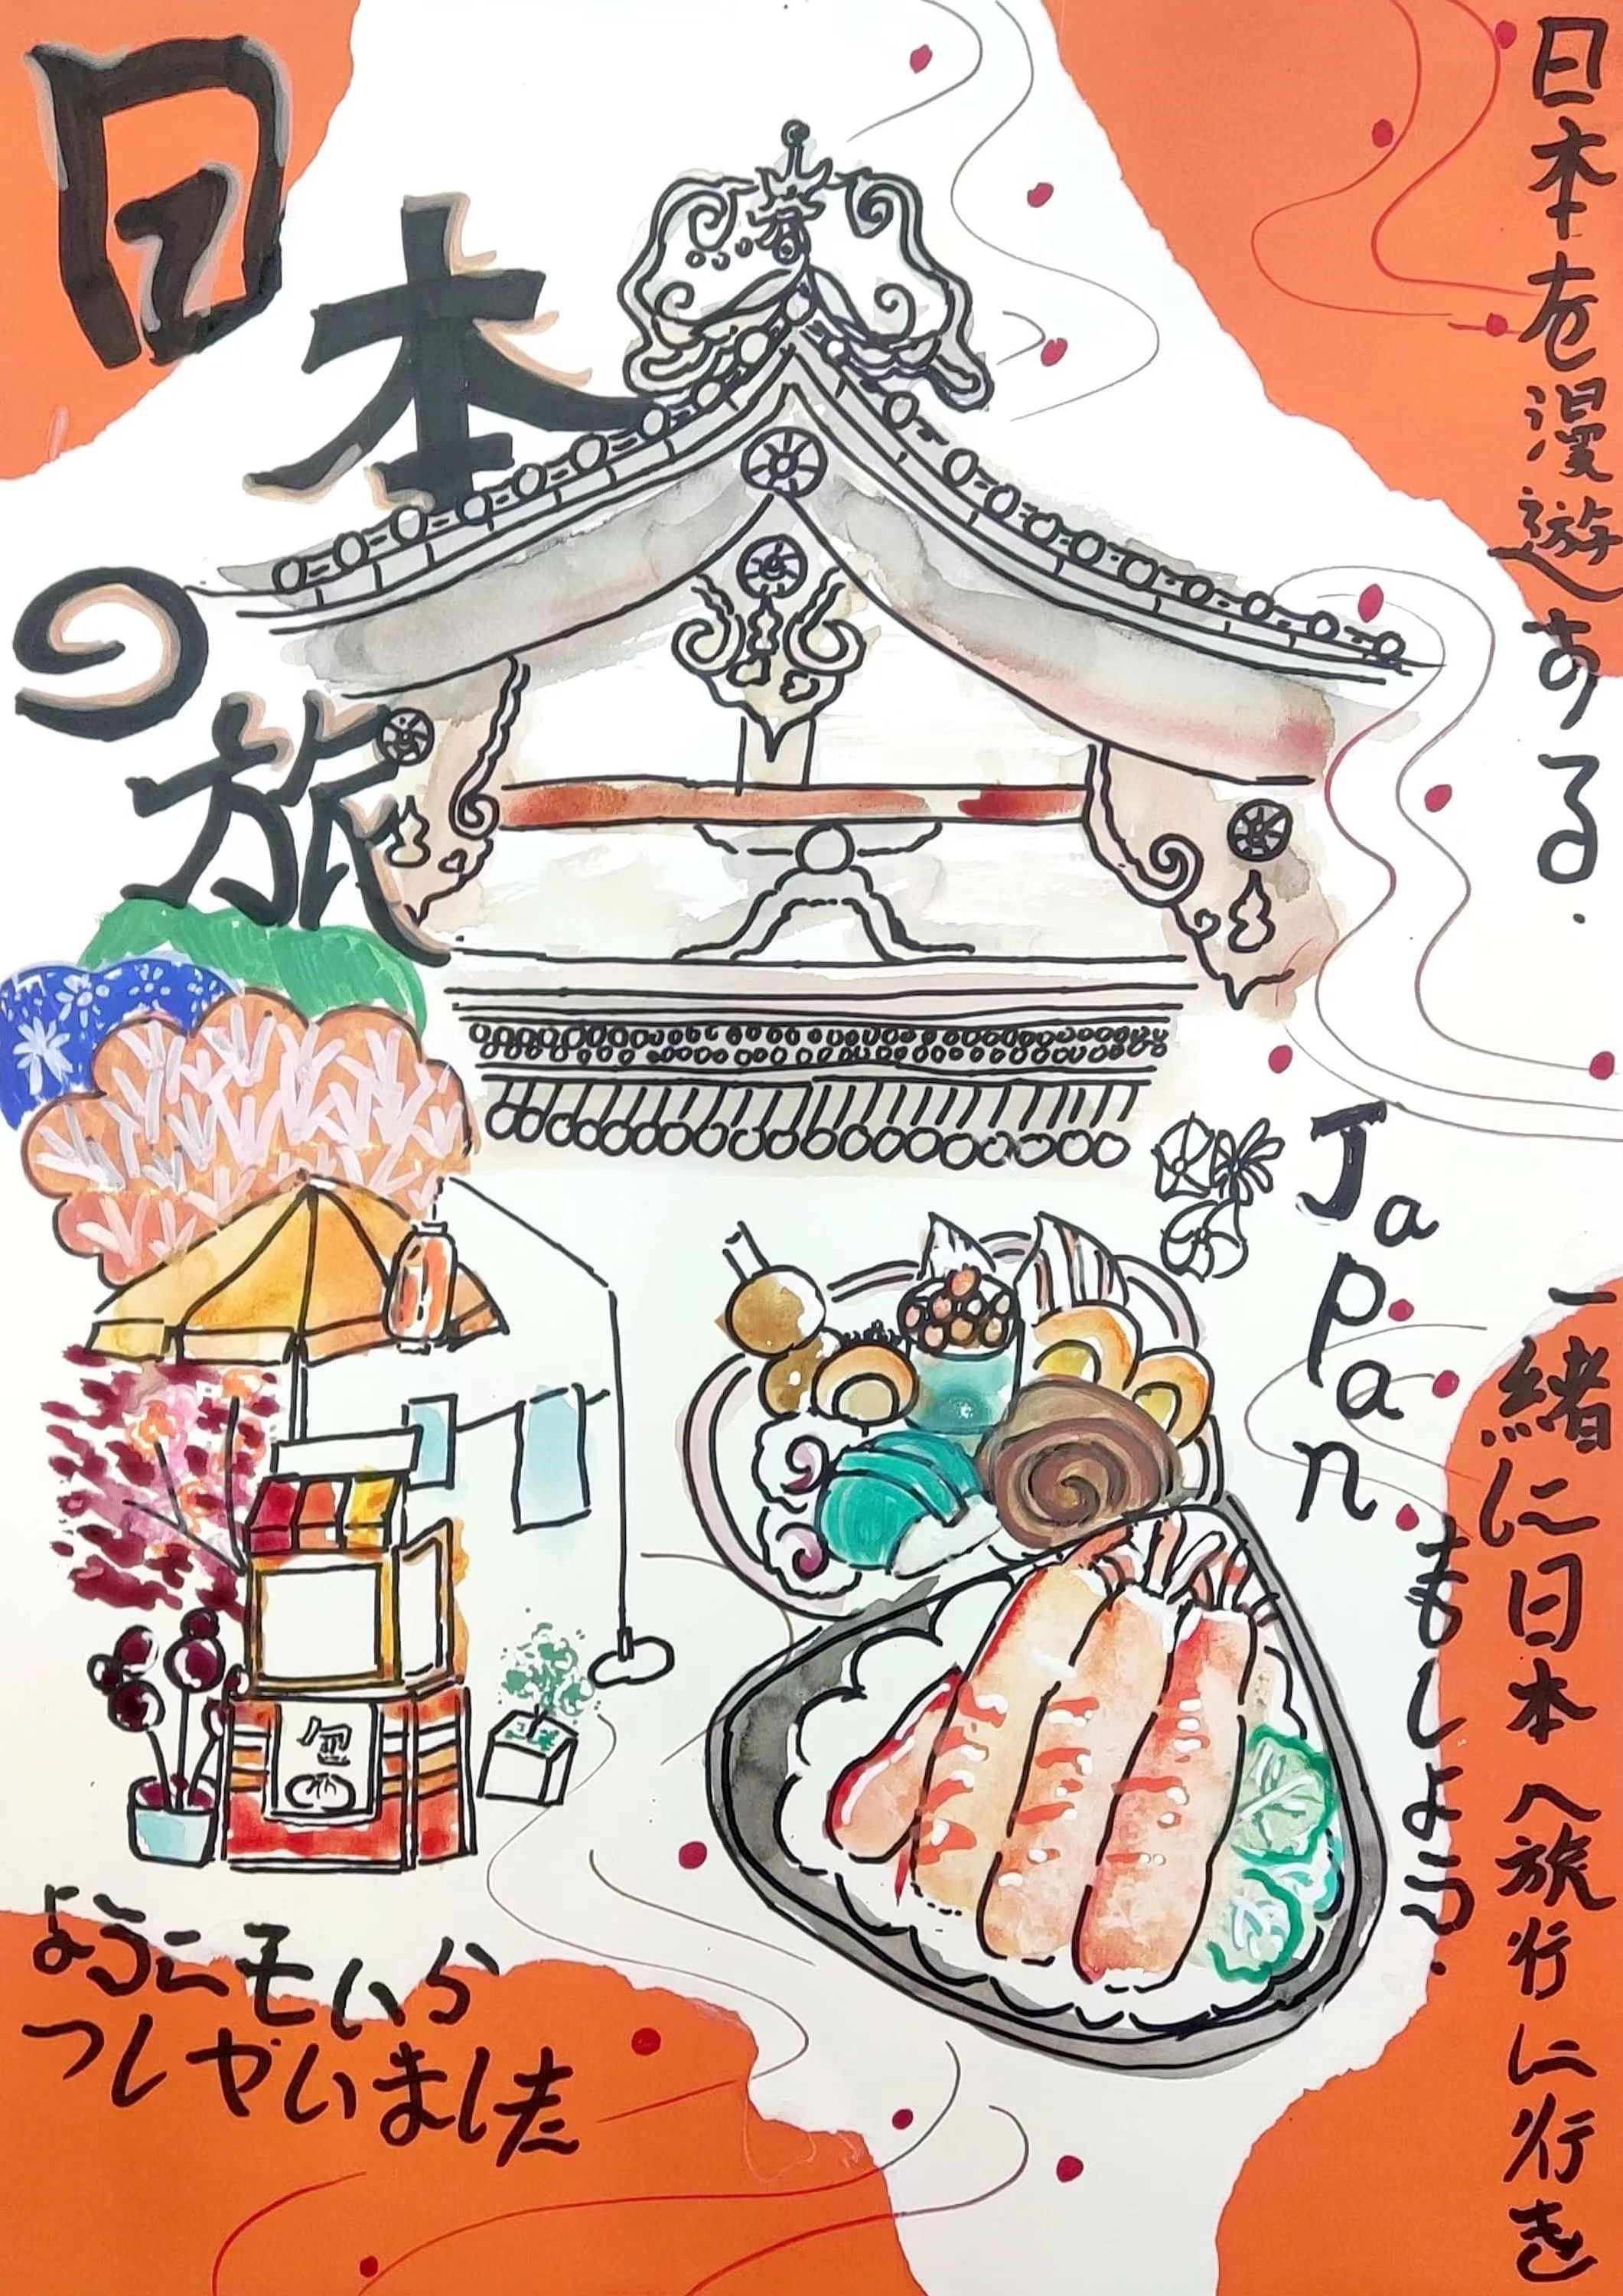 日本の旅
日本を漫遊する.
Japan
一緒に日本へ旅行に行き
ましょう.
ようこそいら
っしゃいました